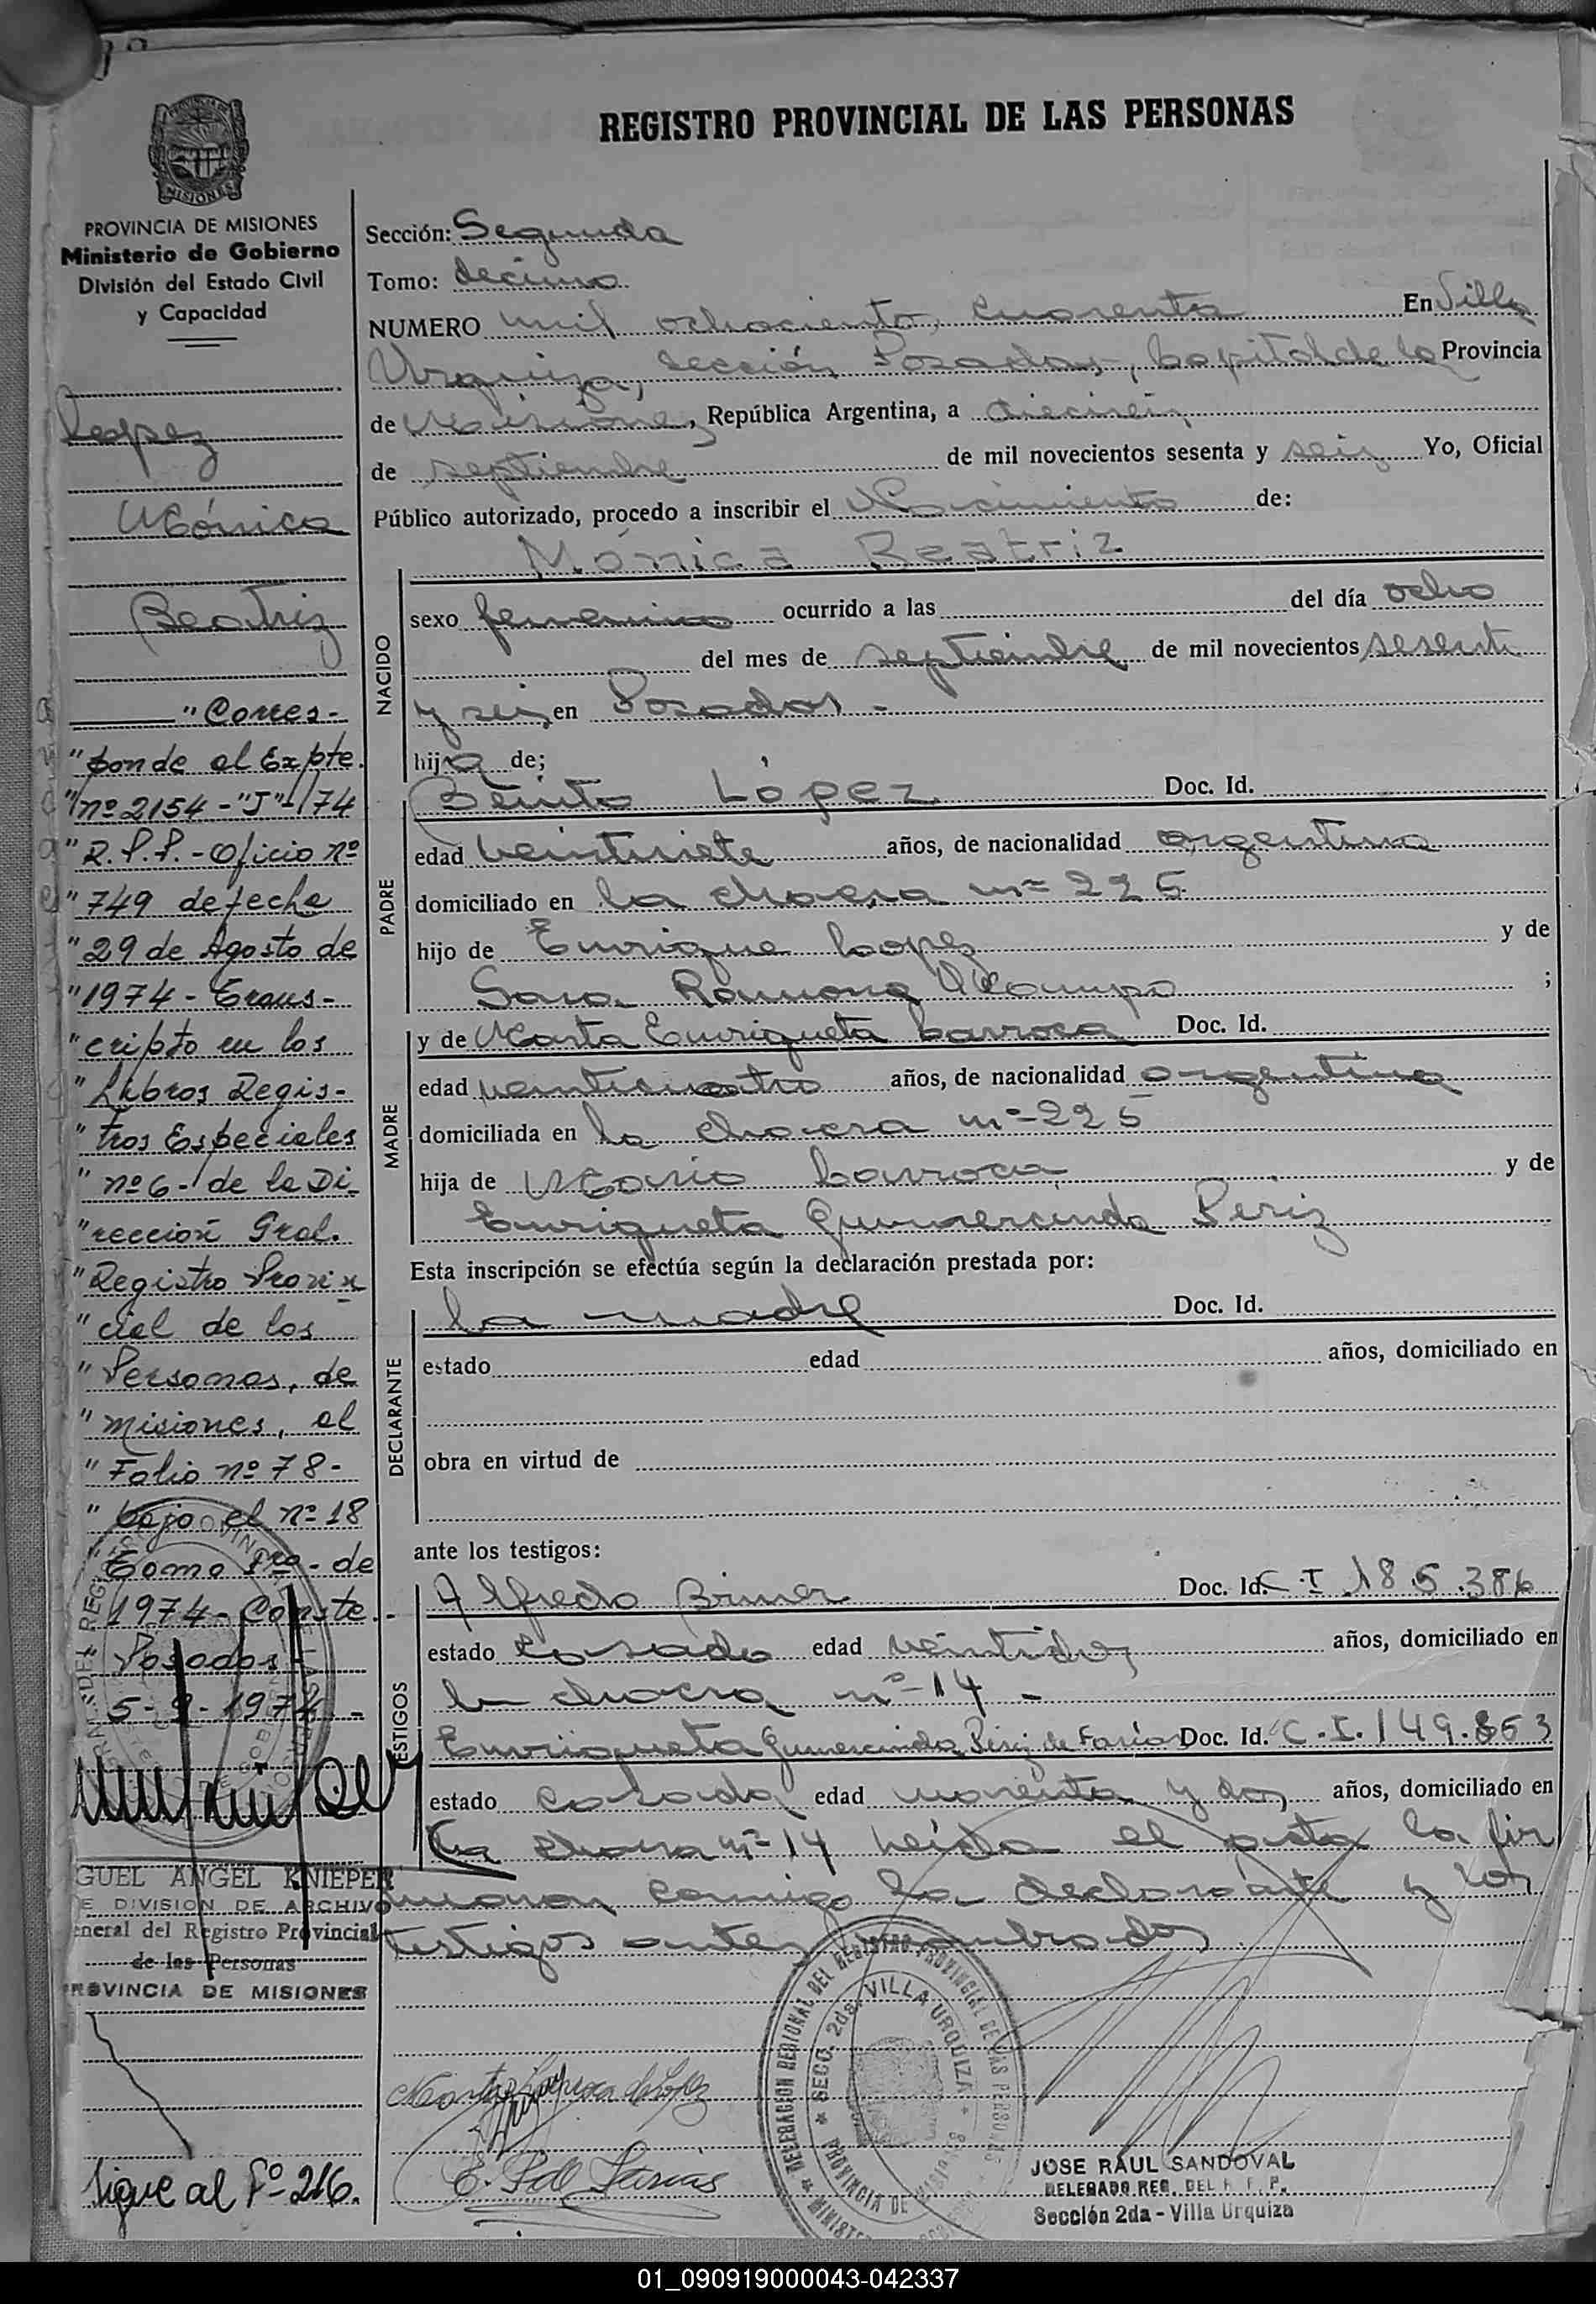 REGISTRO PROVINCIAL DE LAS PERSONAS
MISIONES
PROVINCIA DE MISIONES
Ministerio de Gobierno
División del Estado Civil
y Capacidad
Lopez
Mónica
Beatriz
"Corres-
"ponde al Expte.
"nº 2154-"J"-/74
"R.P.P.-Oficio nº
"749 de fecha
"29 de Agosto de
"1974-Trans-
"cripto en los
"Libros Regis-
"tros Especiales
"nº 6- de la Di-
"rección Gral.
"Registro Provin
"cial de las
"Personas, de
"Misiones, al
"Folio nº 78-
"bajo el nº 18
"Tomo 1ro- de
1974-Conste.-
Posadas
5-9-1974.-
GUEL ANGEL KNIEPER
E DIVISION DE ARCHIVO
eneral del Registro Provincial
de las Personas
PROVINCIA DE MISIONES
Sigue al Fº 216.
Sección: Segunda
Tomo: decimo
NUMERO mil ochociento, cuarenta En Villa
Urquiza, sección Posadas, Capital de la Provincia
de Misiones, República Argentina, a dieciseis
de septiembre de mil novecientos sesenta y seis Yo, Oficial
Público autorizado, procedo a inscribir el Nacimiento de:
Mónica Beatriz
NACIDO
sexo femenino ocurrido a las del día ocho
del mes de septiembre de mil novecientos sesenta
y seis en Posadas -
hija de;
Benito López Doc. Id.
PADRE
edad veintisiete años, de nacionalidad argentina
domiciliado en la chacra nº 225
hijo de Enrique Lopez y de
Sara Ramona Ocampo ;
y de Marta Enriqueta Larroca Doc. Id.
MADRE
edad veinticuatro años, de nacionalidad argentina
domiciliada en la chacra nº 225
hija de Mario Larroca y de
Enriqueta Gumercinda Periz
Esta inscripción se efectúa según la declaración prestada por:
la madre Doc. Id.
DECLARANTE
estado edad años, domiciliado en
obra en virtud de
ante los testigos:
Alfredo Doc. Id. C.I 185.386
TESTIGOS
estado casado edad veintidos años, domiciliado en
la chacra nº 14 -
Enriqueta Gumercinda Periz de Farias Doc. Id. C.I. 149.853
estado casada edad y dos años, domiciliado en
la chacra nº 14 Leida el acta la fir
maron conmigo la declarante y los
testigos antes nombrados
Marta Larroca de López
E. P de Farias
DELEGACION REGIONAL DEL REGISTRO PROVINCIAL DE LAS PERSONAS
SECC. 2da. VILLA URQUIZA
PROVINCIA DE MISIONES
JOSE RAUL SANDOVAL
DELEGADO REG. DEL R. P. P.
Sección 2da - Villa Urquiza
01_090919000043-042337